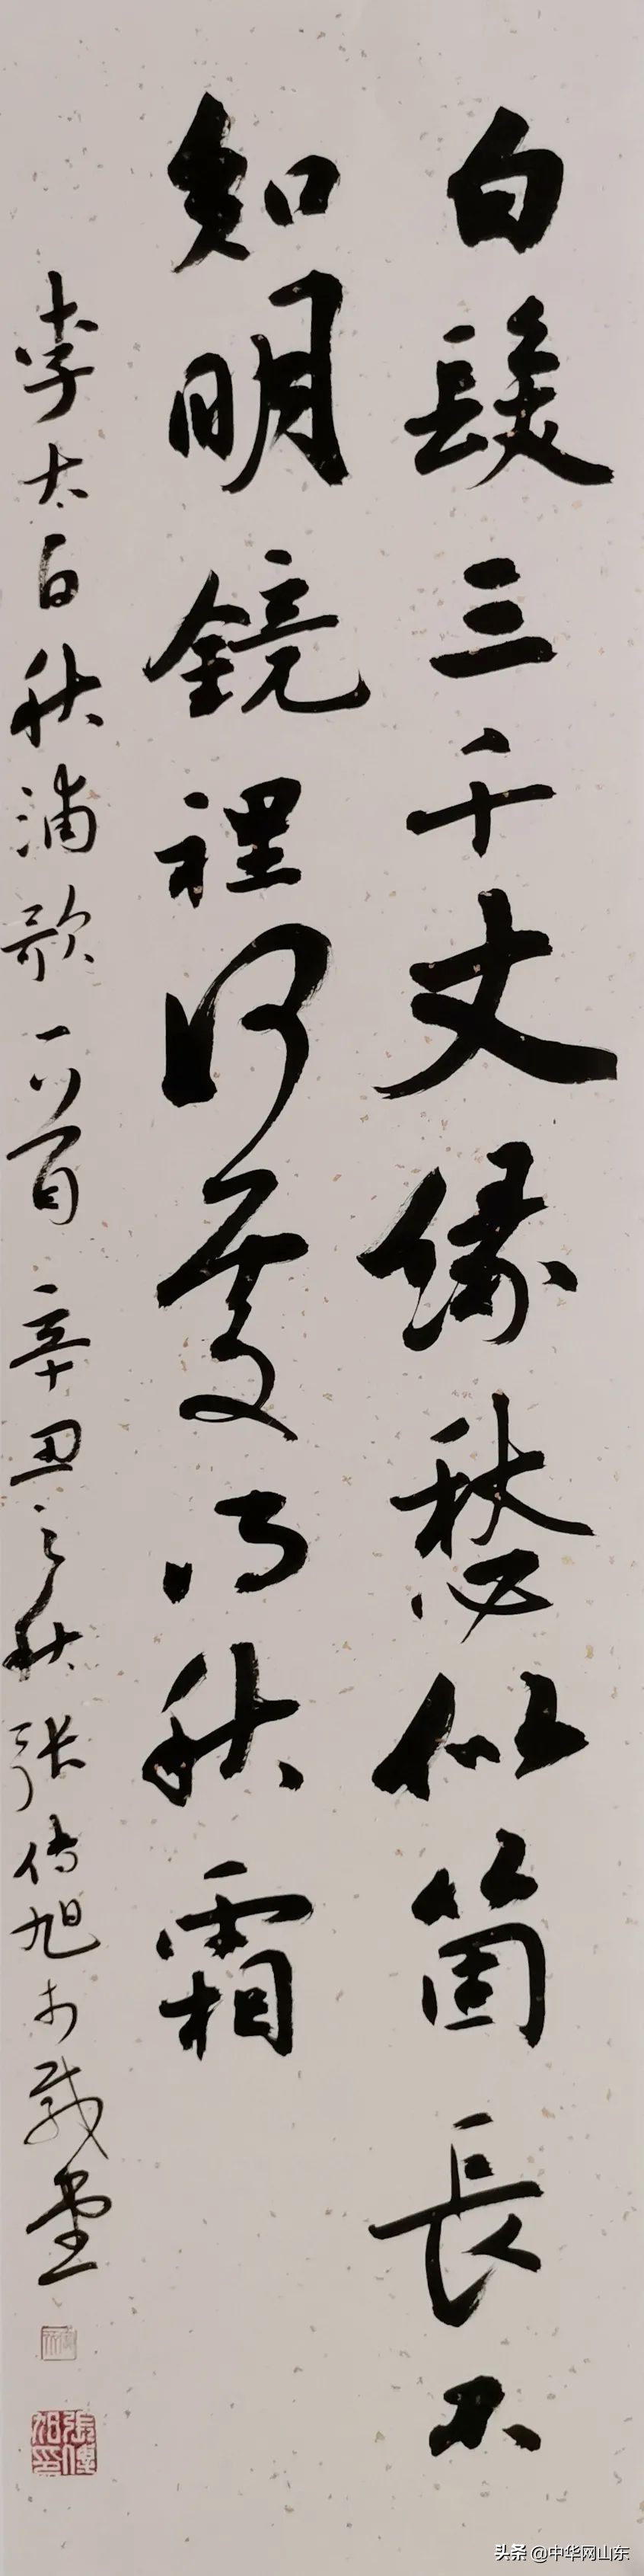 白髮三千丈緣愁似箇長不
知明鏡裡何處得秋霜
李太白秋浦歌一首 辛丑之秋 張傳旭於堂
張傳旭印
头条 @中华网山东